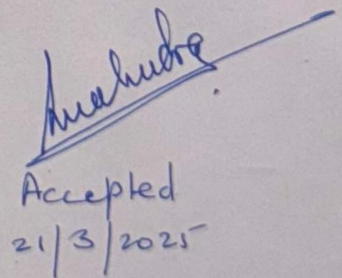 Accepted
21/3/2025